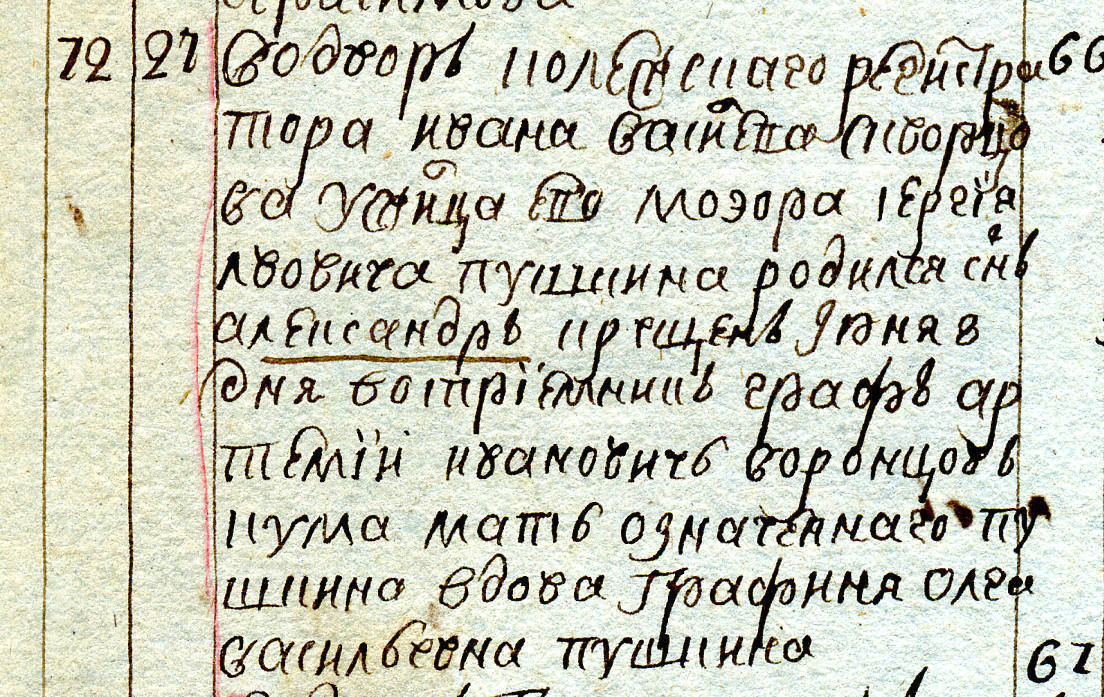 72 27 Во дворѣ колежскаго регистра 66
тора ивана васильева скворцо
ва у жилца ево моэора сергія
лвовича пушкина родился снъ
александръ крещенъ июня 8
дня воспріемникъ графъ ар
темій ивановичь воронцовъ
кума мать означеннаго пу
шкина вдова графиня олга
васильевна пушкина
67